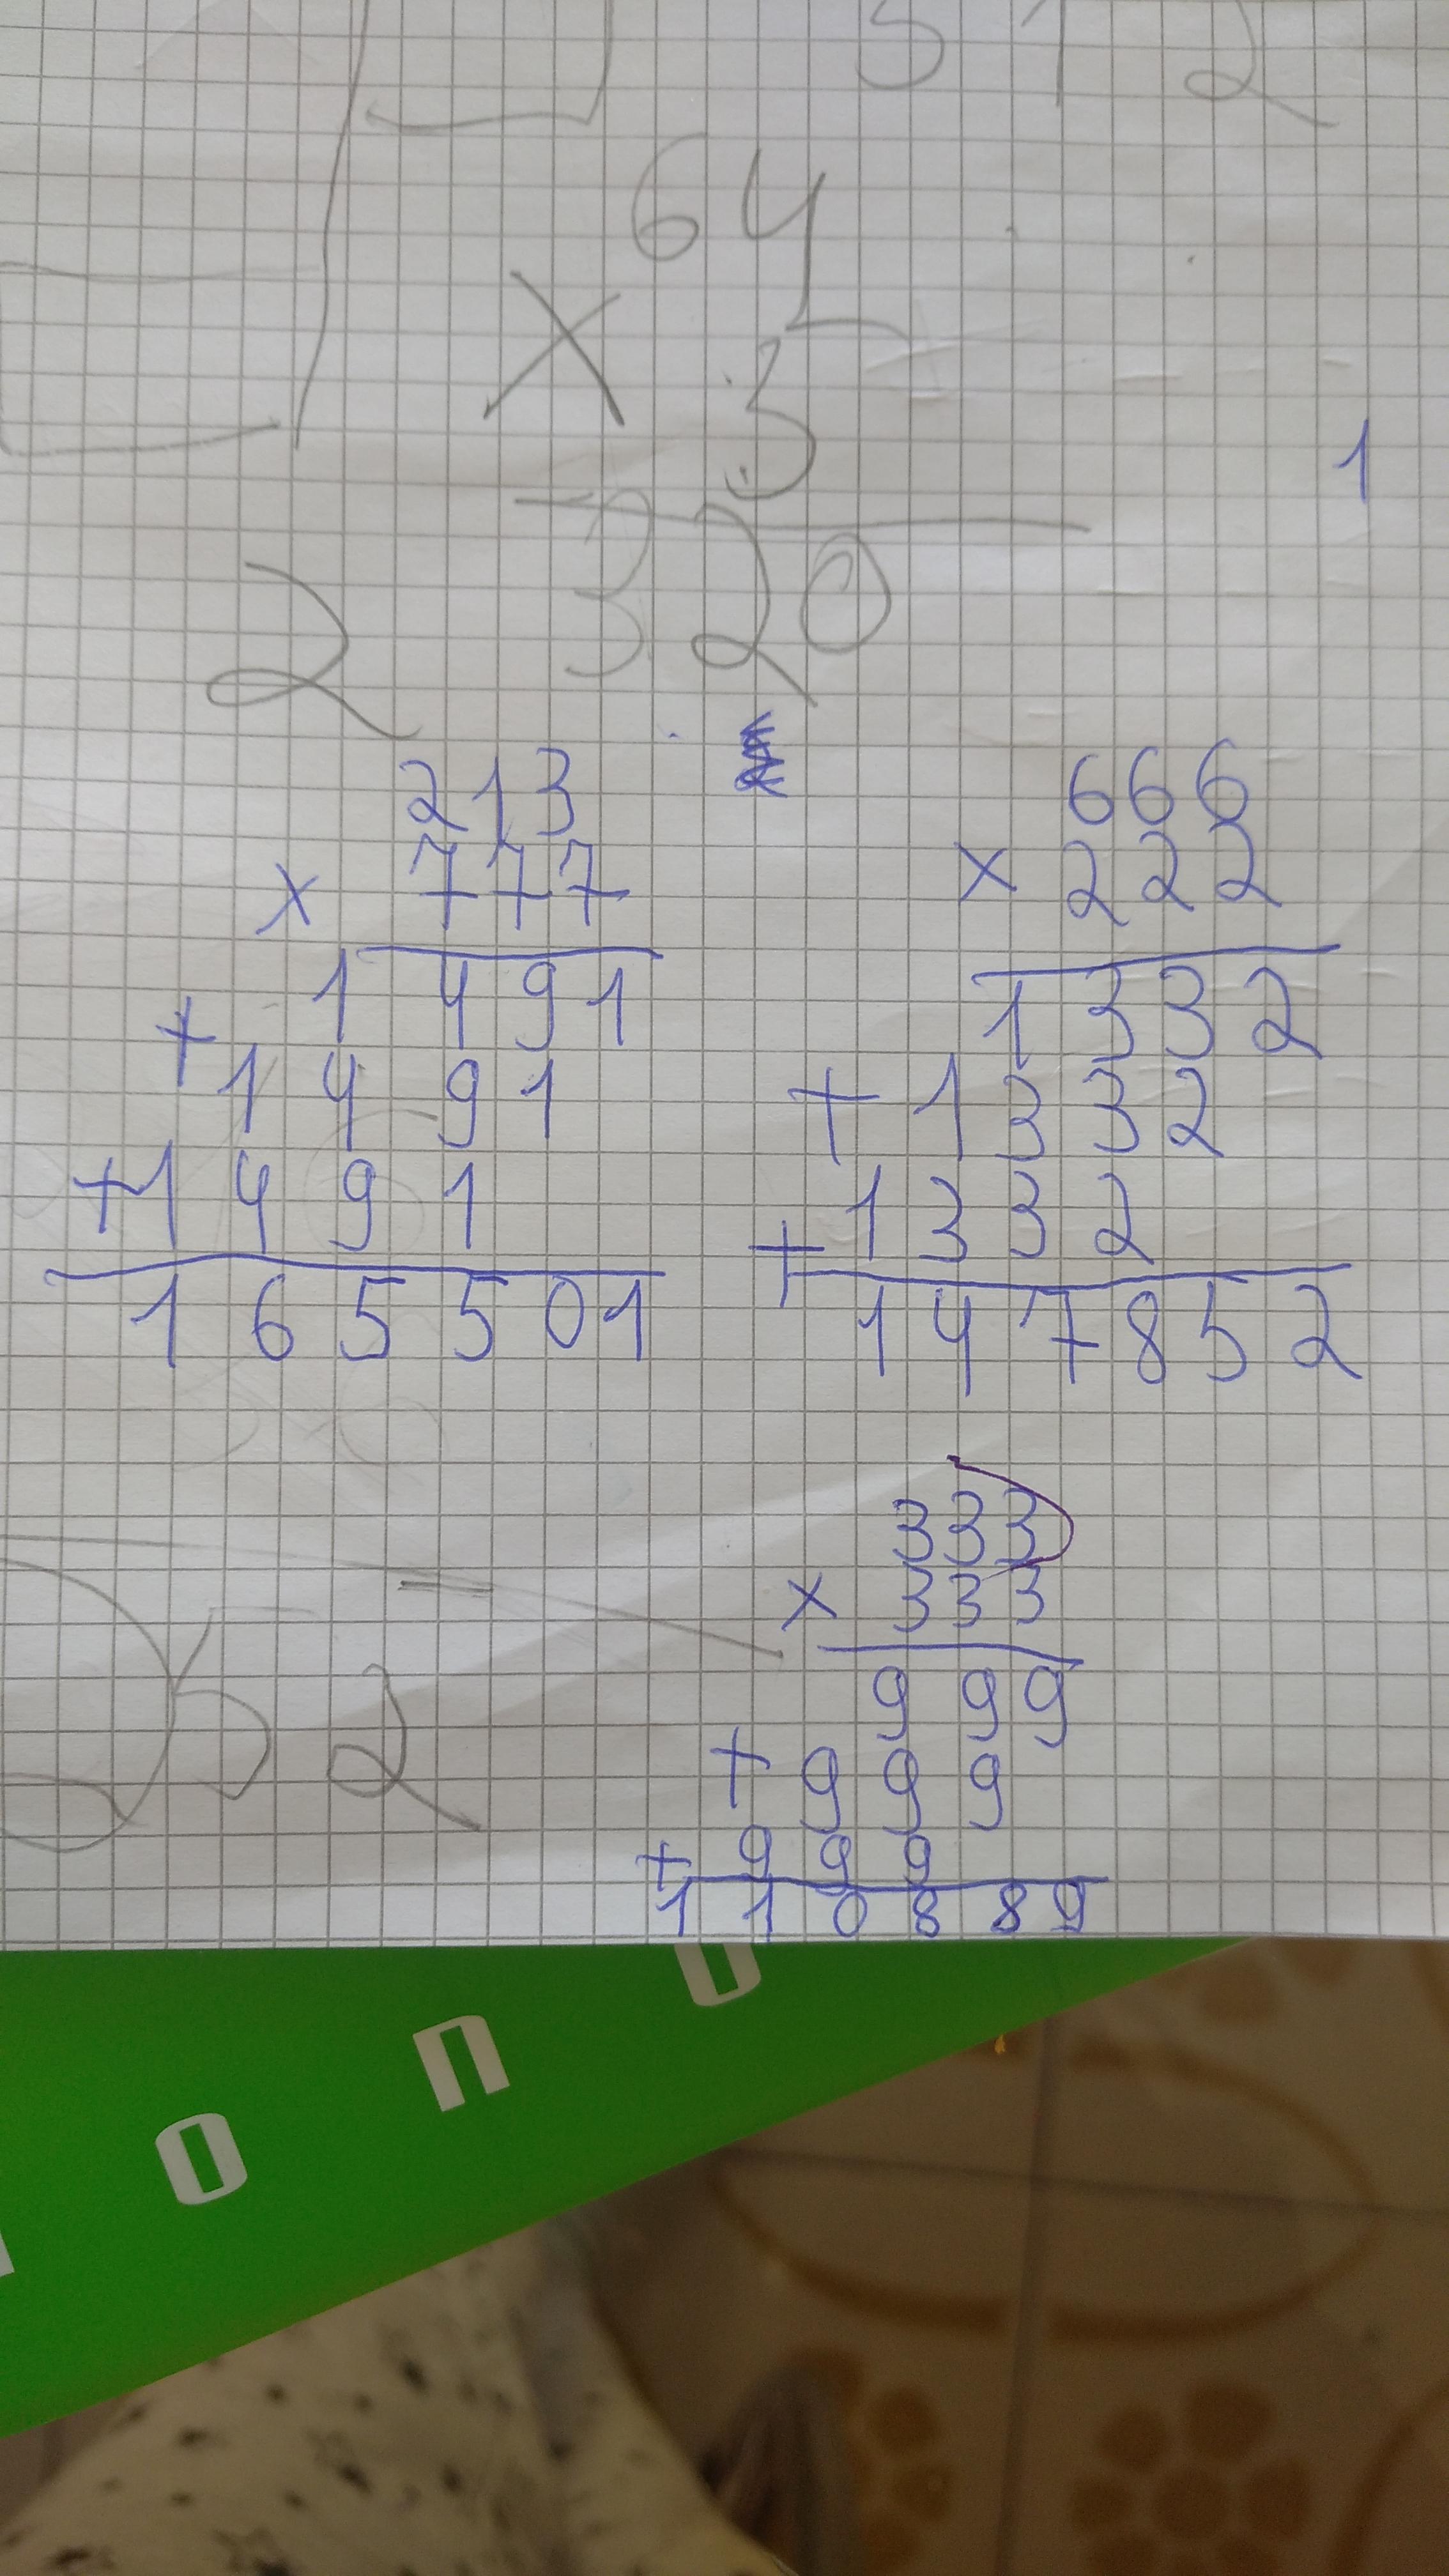 5 1 2
64
× 5
320
2
1
213
× 777
1 4 9 1
+ 1 4 9 1
+ 1 4 9 1
1 6 5 5 0 1
666
× 222
1 3 3 2
+ 1 3 3 2
+ 1 3 3 2
1 4 7 8 5 2
333
× 333
9 9 9
+ 9 9 9
+ 9 9 9
1 1 0 8 8 9
5 2
o n